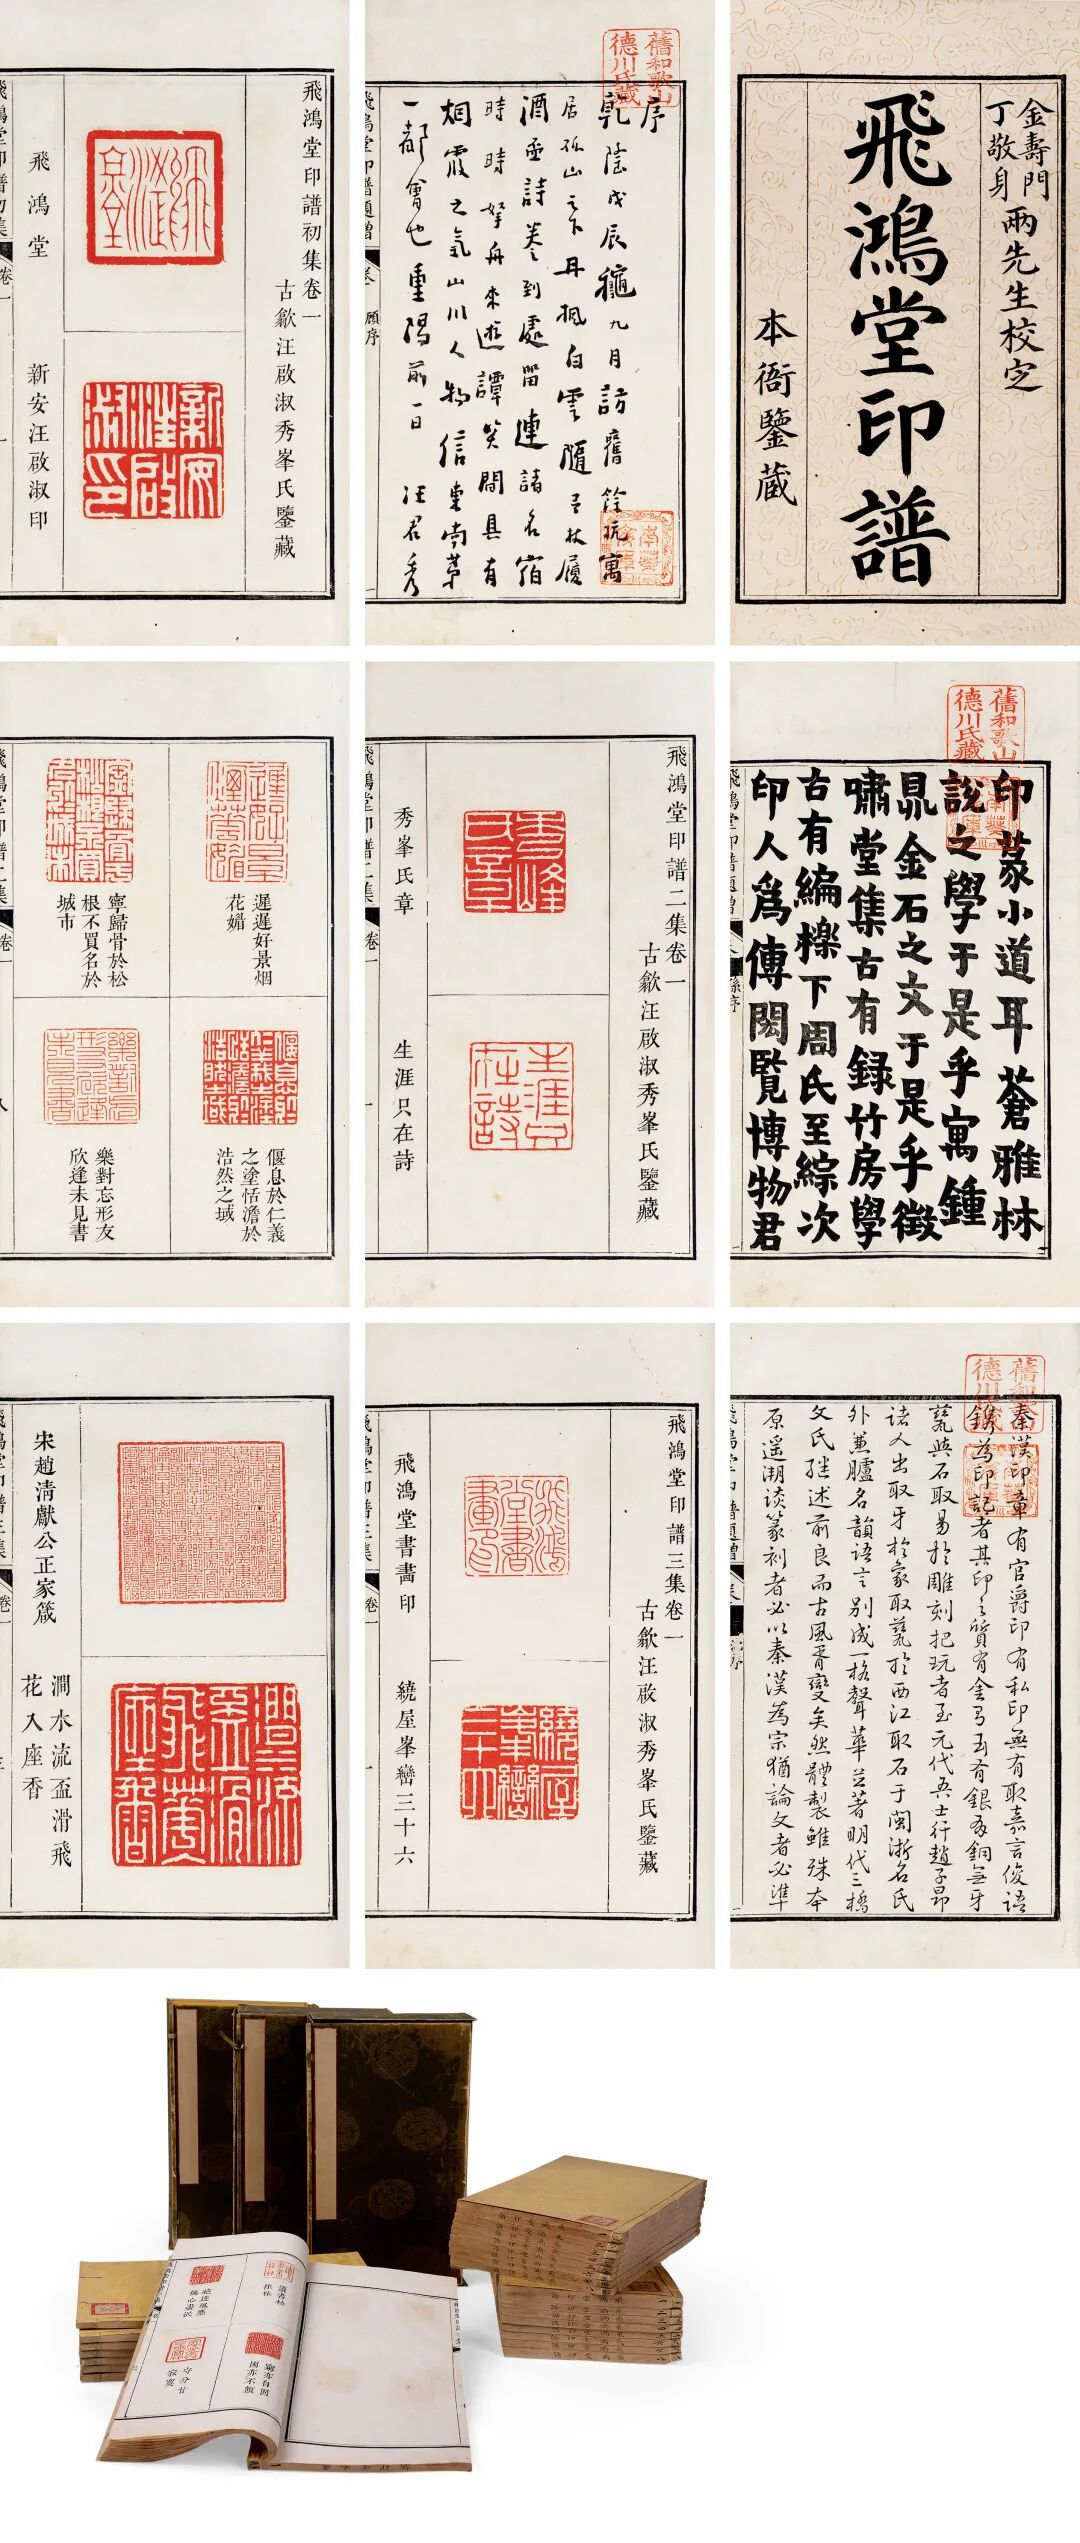 金壽門
丁敬身
兩先生校定
飛鴻堂印譜
本衙鑒藏
舊和歌山
德川氏藏
序
乾隆戊辰龝九月訪舊餘杭寓
居孤山之下丹楓白雲隨吾杖履
酒壺詩卷到處留連諸名宿
時時拏舟來遊譚笑間具有
烟霞之氣山川人物信東南第
一都會也重陽前一日汪君秀
飛鴻堂印譜初集卷一
古歙汪啟淑秀峯氏鑒藏
飛鴻堂
新安汪啟淑印
舊和歌山
德川氏藏
印篆小道耳蒼雅林
說之學于是乎寓鍾
鼎金石之文于是乎徵
嘯堂集古有錄竹房學
古有編櫟下周氏至綜次
印人爲傳閎覽博物君
飛鴻堂印譜二集卷一
古歙汪啟淑秀峯氏鑒藏
秀峯氏章
生涯只在詩
遲遲好景烟
花媚
寧歸骨於松
根不買名於
城市
偃息於仁義
之塗恬澹於
浩然之域
樂對忘形友
欣逢未見書
舊和歌山
德川氏藏
秦漢印章有官爵印有私印無有取嘉言俊語
鐫為印記者其印之質有金有玉有銀有銅無牙
甃與石取易於雕刻把玩者至元代吾士行趙子昂
諸人出取牙於象取甃於西江取石于閩浙名氏
外兼臚名韻語言別成一格聲華並著明代三橋
文氏繼述前良而古風胥變矣然體製雖殊本
原遥溯談篆刻者必以秦漢為宗猶論文者必準
飛鴻堂印譜三集卷一
古歙汪啟淑秀峯氏鑒藏
飛鴻堂書畵印
繞屋峯巒三十六
宋趙清獻公正家箴
澗水流盃滑飛
花入座香